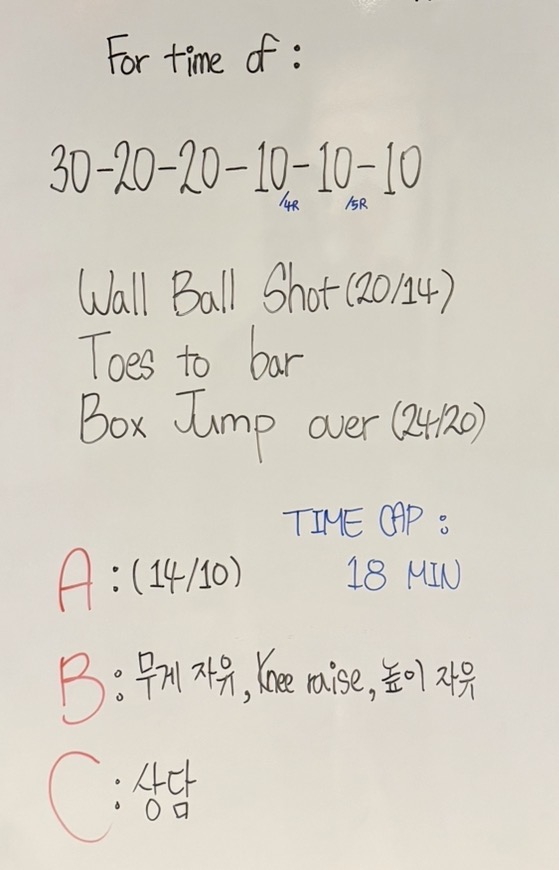 For time of :
30-20-20-10-10-10
/4R /5R
Wall Ball Shot (20/14)
Toes to bar
Box Jump over (24/20)
TIME CAP :
18 MIN
A : (14/10)
B : 무게 자유, Knee raise, 높이 자유
C : 상담